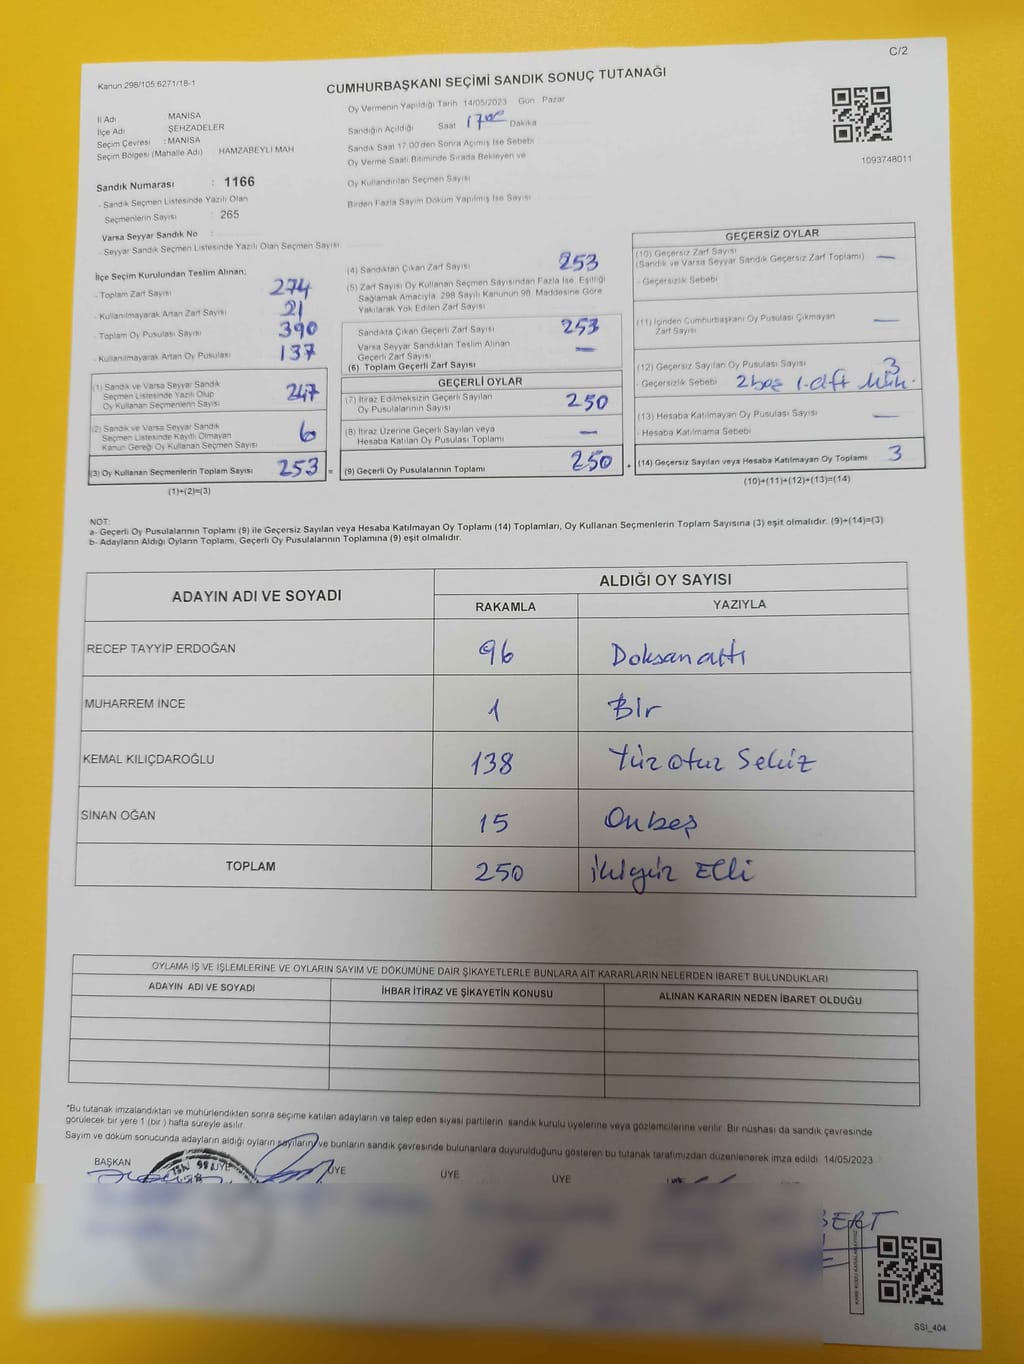 C/2
Kanun:298/105 6271/18-1
CUMHURBAŞKANI SEÇİMİ SANDIK SONUÇ TUTANAĞI
İl Adı MANİSA
İlçe Adı ŞEHZADELER
Seçim Çevresi : MANİSA
Seçim Bölgesi (Mahalle Adı) HAMZABEYLİ MAH
Sandık Numarası : 1166
- Sandık Seçmen Listesinde Yazılı Olan
Seçmenlerin Sayısı : 265
Varsa Seyyar Sandık No :
- Seyyar Sandık Seçmen Listesinde Yazılı Olan Seçmen Sayısı
Oy Vermenin Yapıldığı Tarih :14/05/2023 Gün : Pazar
Sandığın Açıldığı Saat 17:00 Dakika
Sandık Saat 17:00'den Sonra Açımış İse Sebebi
Oy Verme Saati Bitiminde Sırada Bekleyen ve
Oy Kullandırılan Seçmen Sayısı
Birden Fazla Sayım Döküm Yapılmış İse Sayısı
1093748011
İlçe Seçim Kurulundan Teslim Alınan;
- Toplam Zarf Sayısı 274
- Kullanılmayarak Artan Zarf Sayısı 21
- Toplam Oy Pusulası Sayısı 390
- Kullanılmayarak Artan Oy Pusulası 137
(1) Sandık ve Varsa Seyyar Sandık
Seçmen Listesinde Yazılı Olup
Oy Kullanan Seçmenlerin Sayısı 247
(2) Sandık ve Varsa Seyyar Sandık
Seçmen Listesinde Kayıtlı Olmayan
Kanun Gereği Oy Kullanan Seçmen Sayısı 6
(3) Oy Kullanan Seçmenlerin Toplam Sayısı 253 =
(1)+(2)=(3)
(4) Sandıktan Çıkan Zarf Sayısı 253
(5) Zarf Sayısı Oy Kullanan Seçmen Sayısından Fazla İse, Eşitliği
Sağlamak Amacıyla, 298 Sayılı Kanunun 98. Maddesine Göre
Yakılarak Yok Edilen Zarf Sayısı
Sandıkta Çıkan Geçerli Zarf Sayısı 253
Varsa Seyyar Sandıktan Teslim Alınan
Geçerli Zarf Sayısı —
(6) Toplam Geçerli Zarf Sayısı
GEÇERLİ OYLAR
(7) İtiraz Edilmeksizin Geçerli Sayılan
Oy Pusulalarının Sayısı 250
(8) İtiraz Üzerine Geçerli Sayılan veya
Hesaba Katılan Oy Pusulası Toplamı —
(9) Geçerli Oy Pusulalarının Toplamı 250 +
GEÇERSİZ OYLAR
(10) Geçersiz Zarf Sayısı
(Sandık ve Varsa Seyyar Sandık Geçersiz Zarf Toplamı) —
- Geçersizlik Sebebi
(11) İçinden Cumhurbaşkanı Oy Pusulası Çıkmayan
Zarf Sayısı —
(12) Geçersiz Sayılan Oy Pusulası Sayısı 3
- Geçersizlik Sebebi 2 boş 1-çift Müh.
(13) Hesaba Katılmayan Oy Pusulası Sayısı —
- Hesaba Katılmama Sebebi
(14) Geçersiz Sayılan veya Hesaba Katılmayan Oy Toplamı 3
(10)+(11)+(12)+(13)=(14)
NOT:
a- Geçerli Oy Pusulalarının Toplamı (9) ile Geçersiz Sayılan veya Hesaba Katılmayan Oy Toplamı (14) Toplamları, Oy Kullanan Seçmenlerin Toplam Sayısına (3) eşit olmalıdır. (9)+(14)=(3)
b- Adayların Aldığı Oyların Toplamı, Geçerli Oy Pusulalarının Toplamına (9) eşit olmalıdır.
ADAYIN ADI VE SOYADI
ALDIĞI OY SAYISI
RAKAMLA YAZIYLA
RECEP TAYYİP ERDOĞAN 96 Doksan altı
MUHARREM İNCE 1 Bir
KEMAL KILIÇDAROĞLU 138 Yüz otuz Sekiz
SİNAN OĞAN 15 Onbeş
TOPLAM 250 İkiyüz Elli
OYLAMA İŞ VE İŞLEMLERİNE VE OYLARIN SAYIM VE DÖKÜMÜNE DAİR ŞİKAYETLERLE BUNLARA AİT KARARLARIN NELERDEN İBARET BULUNDUKLARI
ADAYIN ADI VE SOYADI İHBAR İTİRAZ VE ŞİKAYETİN KONUSU ALINAN KARARIN NEDEN İBARET OLDUĞU
*Bu tutanak imzalandıktan ve mühürlendikten sonra seçime katılan adayların ve talep eden siyasi partilerin sandık kurulu üyelerine veya gözlemcilerine verilir. Bir nüshası da sandık çevresinde
görülecek bir yere 1 (bir ) hafta süreyle asılır.
Sayım ve döküm sonucunda adayların aldığı oyların sayılarını ve bunların sandık çevresinde bulunanlara duyurulduğunu gösteren bu tutanak tarafımızdan düzenlenerek imza edildi. 14/05/2023
BAŞKAN ÜYE ÜYE ÜYE ÜYE
SSİ_404